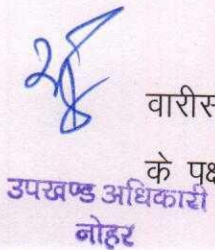 वारीस
के पक्ष
उपखण्ड अधिकारी
नोहर